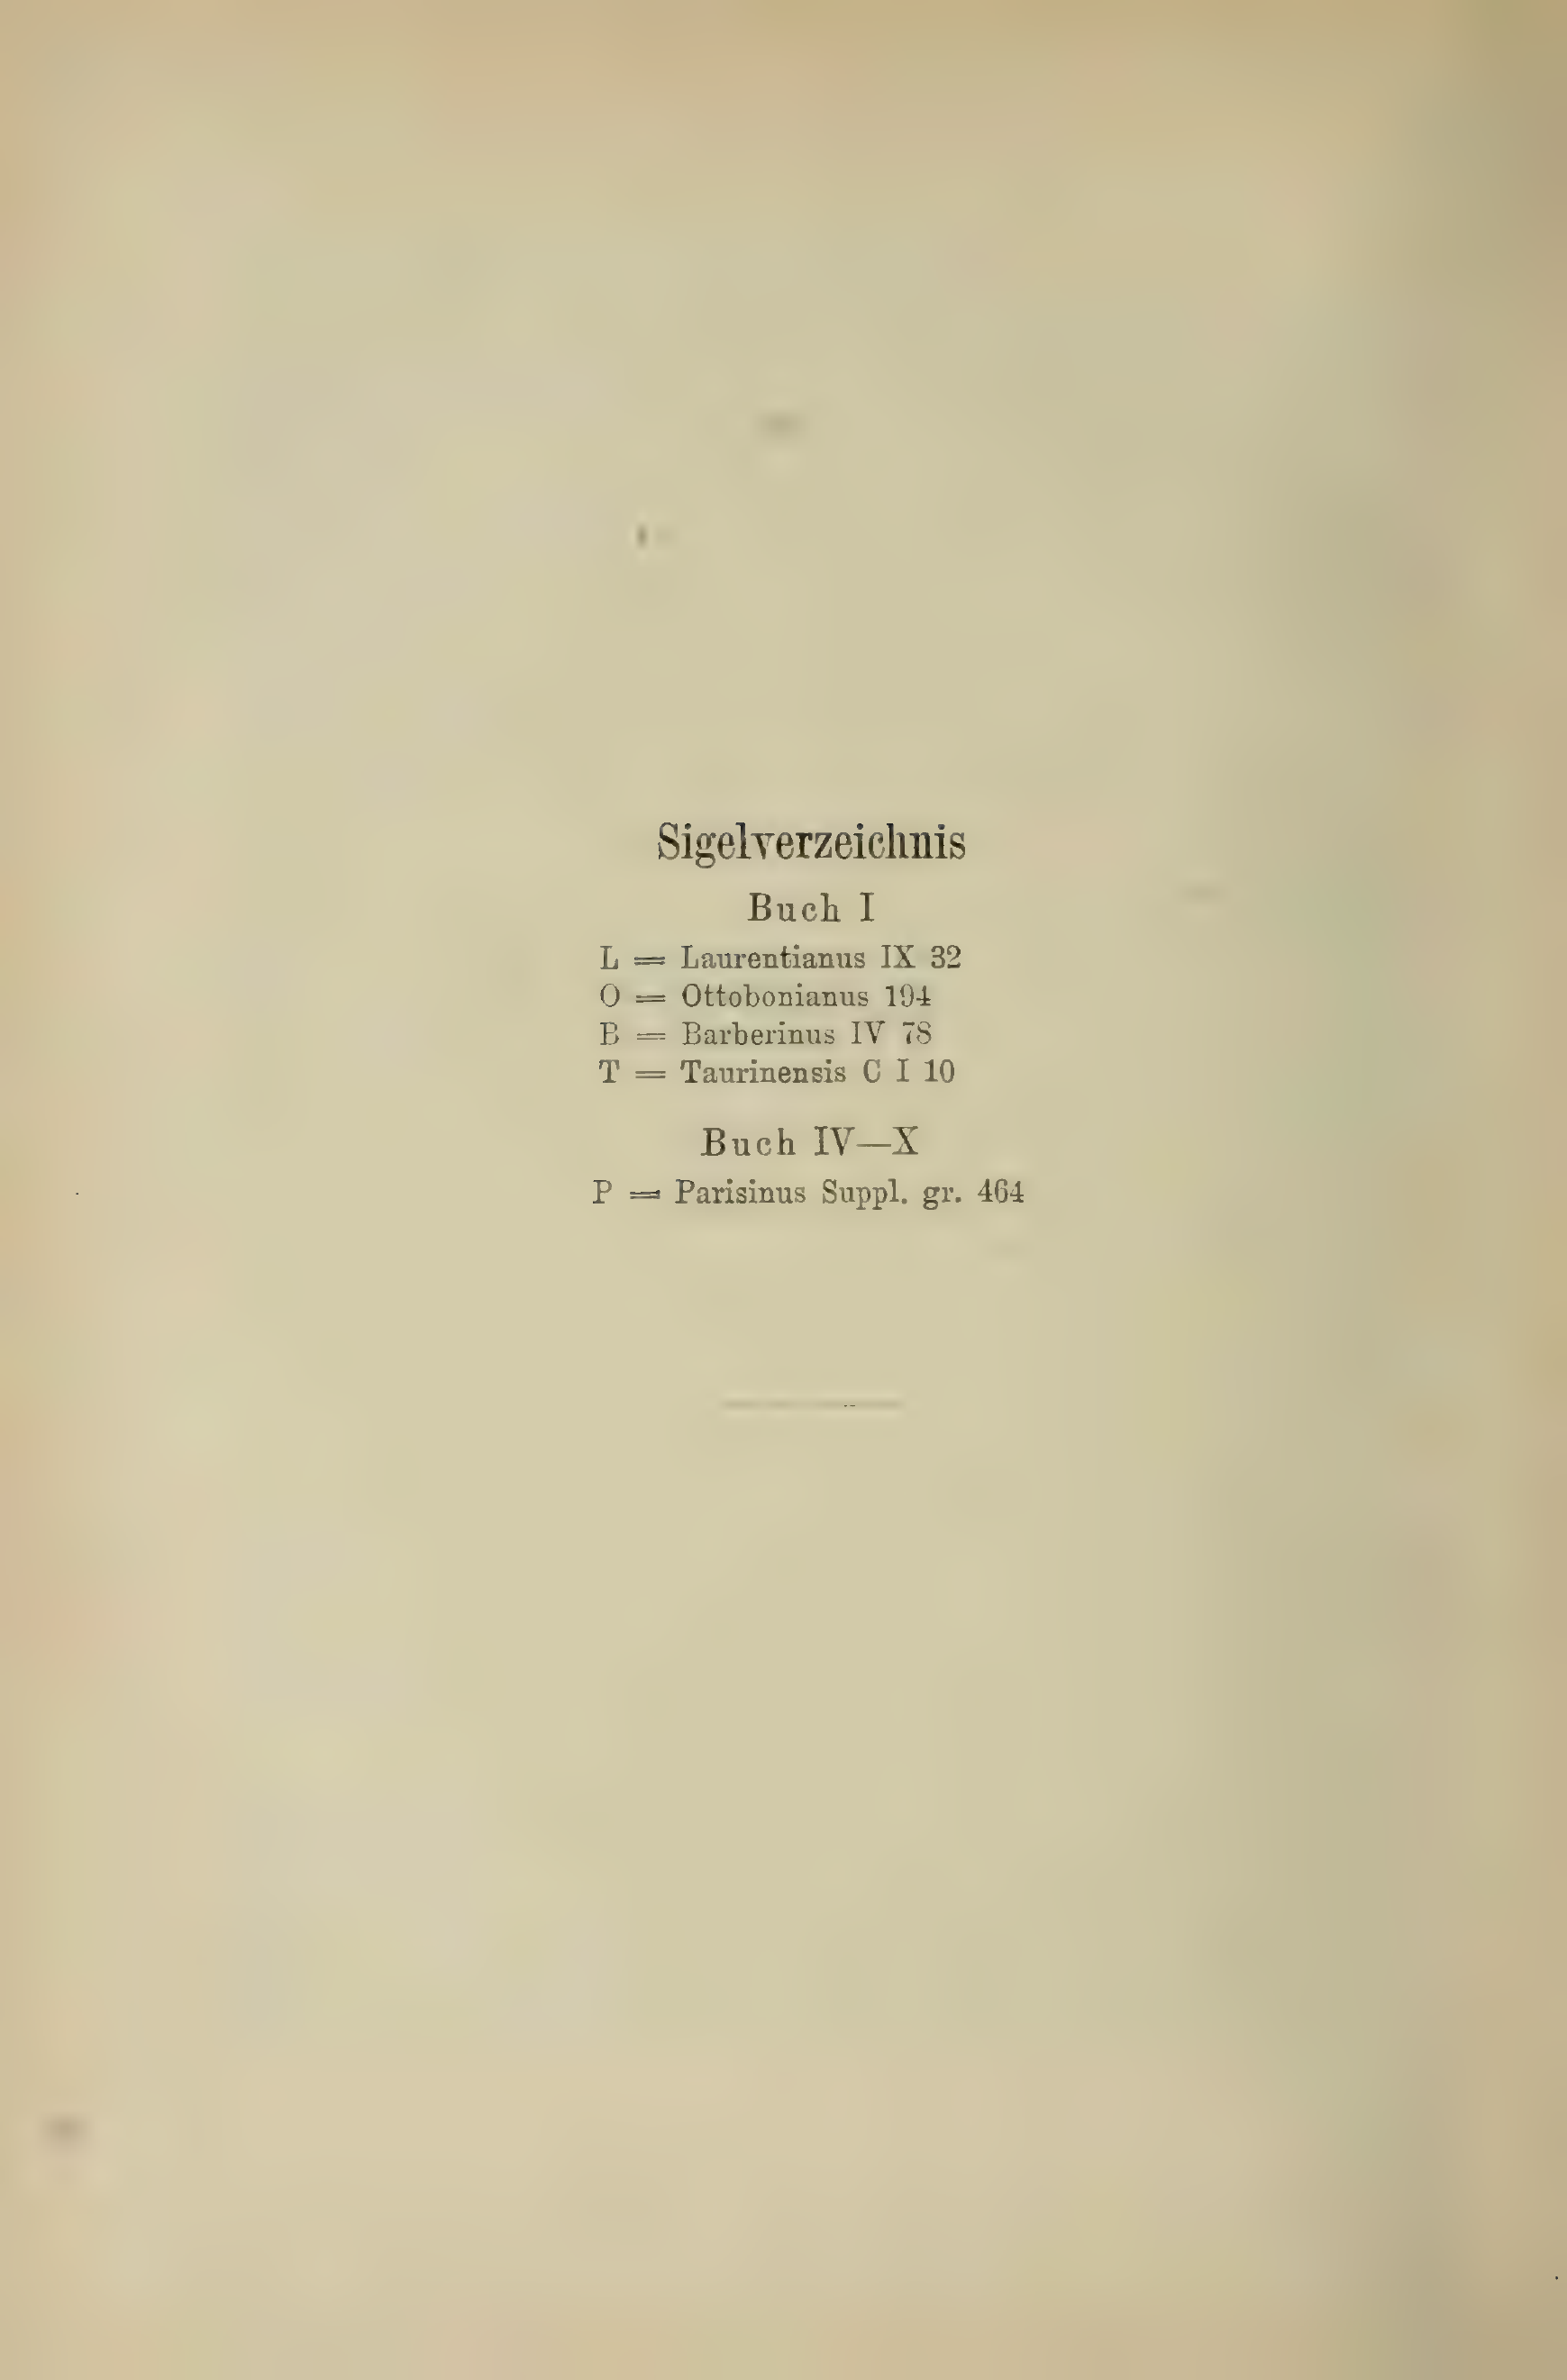 Sigelverzeichnis
Buch I
L = Laurentianus IX 32
O = Ottobonianus 194
B = Barberinus IV 78
T = Taurinensis C I 10
Buch IV—X
P = Parisinus Suppl. gr. 464